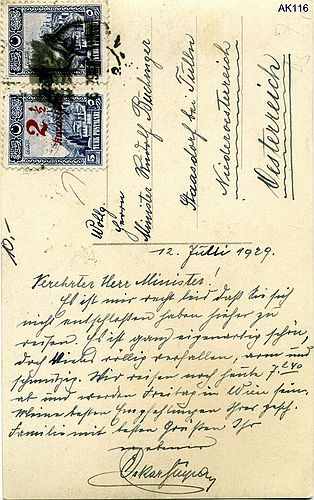 AK116
2 1/2
5
10.-
Wolhg.
Herrn
Minister Rudolf Buchinger
Staasdorf bei Tulln
Niederoesterreich
Oesterreich
12. Juli 1929.
Verehrter Herr Minister!
Es ist mir recht leid daß Sie sich
nicht entschlossen haben hieher zu
reisen. Es ist ganz eigenartig schön,
doch vieles völlig verfallen, arm und
schmutzig. Wir reisen noch heute 7 Uhr 40
ab und werden Freitag in Wien sein.
Meine besten Empfehlungen Ihrer gesch.
Familie mit besten Grüßen Ihr
ergebener
Oskar